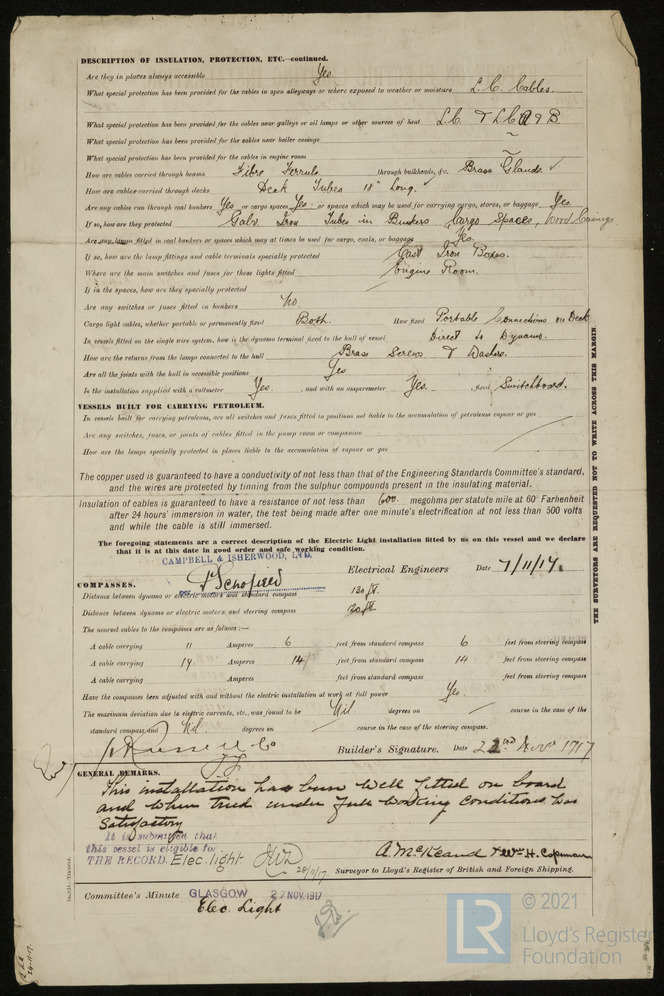 DESCRIPTION OF INSULATION, PROTECTION, ETC.—continued.
Are they in places always accessible Yes.
What special protection has been provided for the cables in open alleyways or where exposed to weather or moisture L.C. Cables.
What special protection has been provided for the cables near galleys or oil lamps or other sources of heat L.C. & L.C. A & B
What special protection has been provided for the cables near boiler casings ~
What special protection has been provided for the cables in engine room ~
How are cables carried through beams Fibre Ferruls. through bulkheads, &c. Brass Glands. ✓
How are cables carried through decks Deck Tubes 18" Long. ✓
Are any cables run through coal bunkers Yes or cargo spaces Yes. or spaces which may be used for carrying cargo, stores, or baggage Yes.
If so, how are they protected Galv. Iron Tubes in Bunkers Cargo Spaces, Wood Casings
Are any lamps fitted in coal bunkers or spaces which may at times be used for cargo, coals, or baggage Yes.
If so, how are the lamp fittings and cable terminals specially protected Cast Iron Boxes.
Where are the main switches and fuses for these lights fitted Engine Room.
If in the spaces, how are they specially protected
Are any switches or fuses fitted in bunkers No.
Cargo light cables, whether portable or permanently fixed Both. How fixed Portable Connections on Deck
In vessels fitted on the single wire system, how is the dynamo terminal fixed to the hull of vessel Direct to Dynamo.
How are the returns from the lamps connected to the hull Brass Screws & Washers.
Are all the joints with the hull in accessible positions Yes
Is the installation supplied with a voltmeter Yes. , and with an amperemeter Yes. , fixed Switchboard.
VESSELS BUILT FOR CARRYING PETROLEUM.
In vessels built for carrying petroleum, are all switches and fuses fitted in positions not liable to the accumulation of petroleum vapour or gas
Are any switches, fuses, or joints of cables fitted in the pump room or companion
How are the lamps specially protected in places liable to the accumulation of vapour or gas
The copper used is guaranteed to have a conductivity of not less than that of the Engineering Standards Committee's standard,
and the wires are protected by tinning from the sulphur compounds present in the insulating material.
Insulation of cables is guaranteed to have a resistance of not less than 600 megohms per statute mile at 60° Farhenheit
after 24 hours' immersion in water, the test being made after one minute's electrification at not less than 500 volts
and while the cable is still immersed.
The foregoing statements are a correct description of the Electric Light installation fitted by us on this vessel and we declare
that it is at this date in good order and safe working condition.
CAMPBELL & ISHERWOOD, LTD.
Schofield Electrical Engineers Date 7/11/17.
COMPASSES.
Distance between dynamo or electric motors and standard compass 130 ft.
Distance between dynamo or electric motors and steering compass 120 ft.
The nearest cables to the compasses are as follows:—
A cable carrying 11 Amperes 6 feet from standard compass 6 feet from steering compass
A cable carrying 14 Amperes 14 feet from standard compass 14 feet from steering compass
A cable carrying Amperes feet from standard compass feet from steering compass
Have the compasses been adjusted with and without the electric installation at work at full power Yes.
The maximum deviation due to electric currents, etc., was found to be Nil degrees on course in the case of the
standard compass and Nil. degrees on course in the case of the steering compass.
Russell & Co Builder's Signature. Date 22nd Nov 1917
GENERAL REMARKS.
This installation has been well fitted on board
and when tried under full working conditions was
satisfactory
It is submitted that
this vessel is eligible for
THE RECORD. Elec. light 28/11/17
A. McKeand & Wm. H. Copeman
Surveyor to Lloyd's Register of British and Foreign Shipping.
Committee's Minute GLASGOW 27 NOV. 1917
Elec. Light
THE SURVEYORS ARE REQUESTED NOT TO WRITE ACROSS THIS MARGIN.
© 2021
LR Lloyd's Register
Foundation